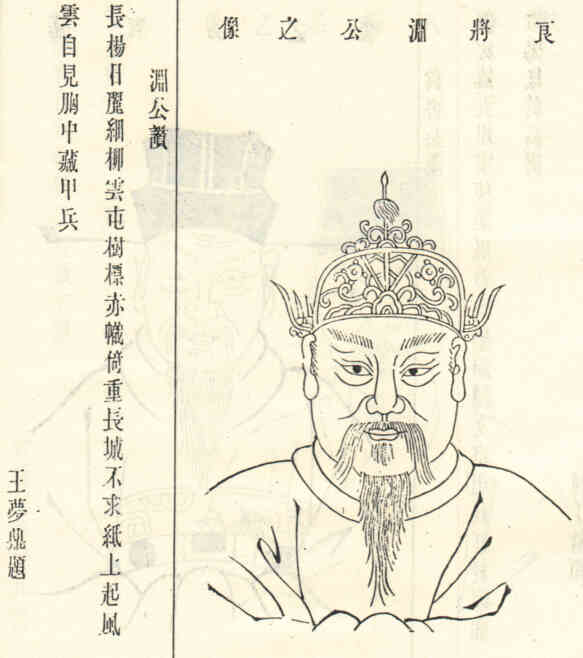 良將淵公之像
淵公讚
長楊日麗細柳雲屯樹標赤幟倚重長城不求紙上起風
雲自見胸中藏甲兵
王夢鼎題